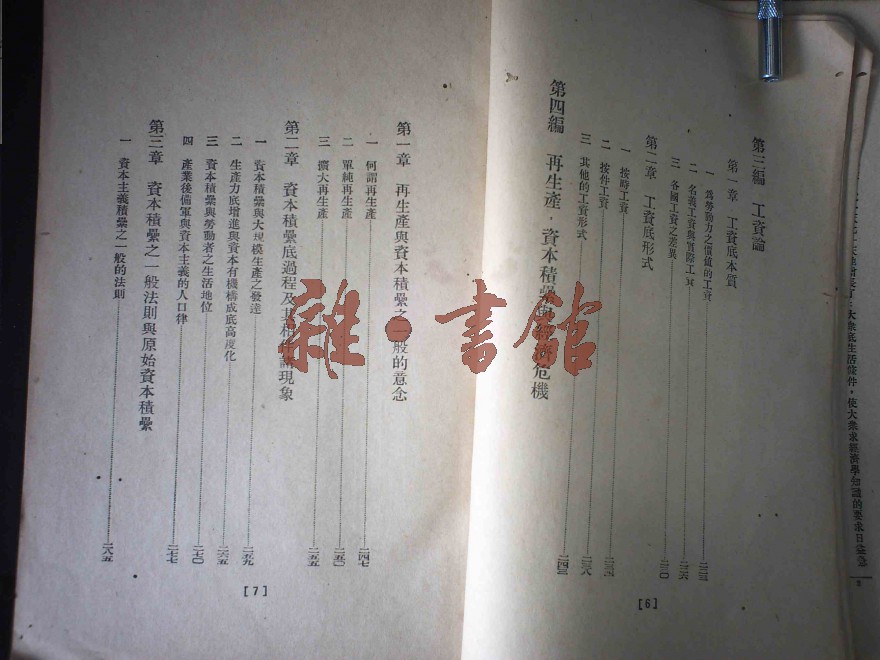 第三編　工資論
第一章　工資底本質
一　為勞動力之價值的工資……二二三
二　名義工資與實際工資……二二六
三　各國工資之差異……二三〇
第二章　工資底形式
一　按時工資
二　按件工資
三　其他的工資形式
第四編　再生產・資本積纍與經濟危機
[6]
第一章　再生產與資本積纍之一般的意念
一　何謂再生產……二四七
二　單純再生產……二五〇
三　擴大再生產……二五五
第二章　資本積纍底過程及其相伴諸現象
一　資本積纍與大規模生產之發達……二五九
二　生產力底增進與資本有機構成底高度化……二六五
三　資本積纍與勞動者之生活地位……二七〇
四　產業後備軍與資本主義的人口律……二七七
第三章　資本積纍之一般法則與原始資本積纍
一　資本主義積纍之一般的法則……二八五
[7]
雜・書館
大眾底生活條件，使大眾求經濟學知識的要求日益急